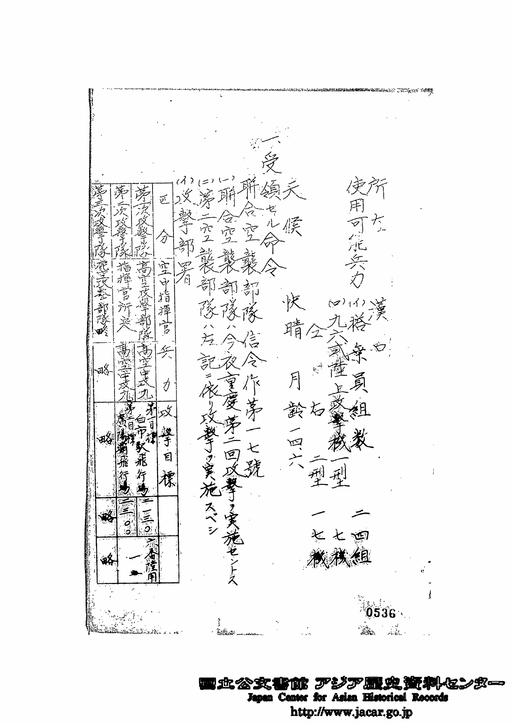 所在 漢口
使用可能兵力 (イ)搭乗員組数 二四組
(ロ)九六式陸上攻撃機一型 七機
仝右 二型 一七機
天候 快晴 月齢一四六
一、受領セル命令
聯合空襲部隊信令作第一七號
(一)聯合空襲部隊ハ今夜重慶第二回攻撃ヲ実施セントス
(二)第二空襲部隊ハ左記ニ依リ攻撃ヲ実施スベシ
(イ)攻撃部署
区分 空中指揮官 兵力 攻撃目標
第一次攻撃隊 高空攻撃部隊 高空中攻九 第一目標 白市駅飛行場 二一三〇 六番陸用
第二次攻撃隊 指揮官所定 高空中攻九 第二目標 飛行場 二三〇〇 一
第三次攻撃隊 略 略 略 略 略
0536
国立公文書館 アジア歴史資料センター
Japan Center for Asian Historical Records
http://www.jacar.go.jp